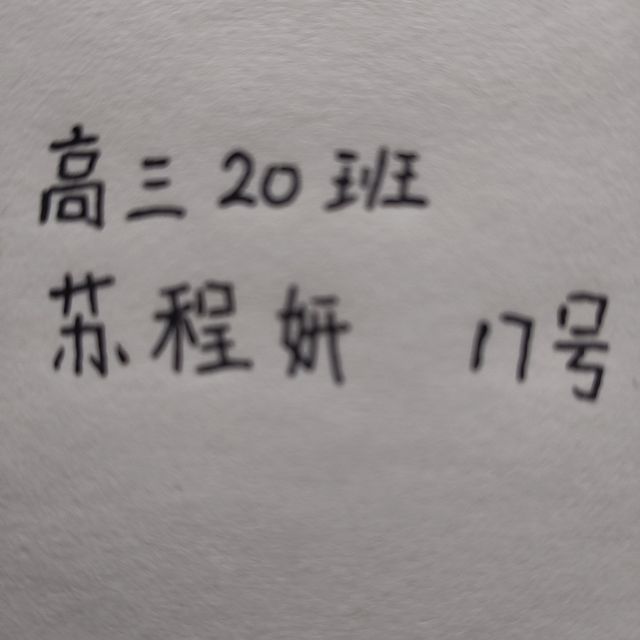 高三20班
苏程妍 17号